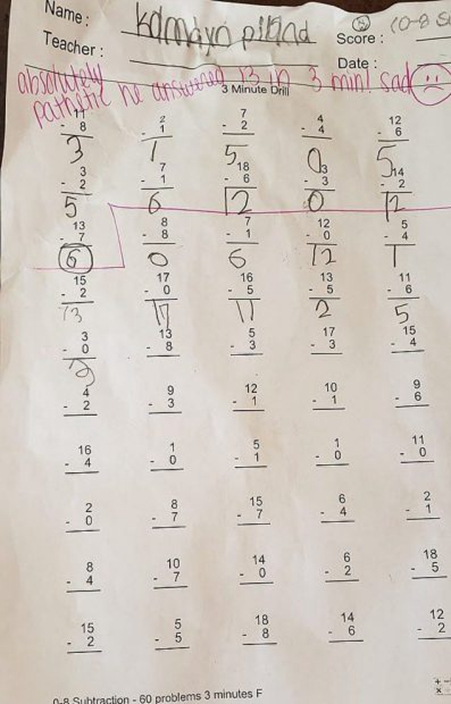 Name : Kamdyn piland
Teacher :
Score : (0-8 S
Date :
absolutely
pathetic he answered 13 in 3 min! sad
3 Minute Drill
17 2 7 4 12
- 8 - 1 - 2 - 4 - 6
3 1 5 0 5
3 7 18 3 14
- 2 - 1 - 6 - 3 - 2
5 6 12 0 12
13 8 7 12 5
- 7 - 8 - 1 - 0 - 4
6 0 6 12 1
15 17 16 13 11
- 2 - 0 - 5 - 5 - 6
13 17 11 2 5
3 13 5 17 15
- 0 - 8 - 3 - 3 - 4
3
4 9 12 10 9
- 2 - 3 - 1 - 1 - 6
16 1 5 1 11
- 4 - 0 - 1 - 0 - 0
2 8 15 6 2
- 0 - 7 - 7 - 4 - 1
8 10 14 6 18
- 4 - 7 - 0 - 2 - 5
15 5 18 14 12
- 2 - 5 - 8 - 6 - 2
0-8 Subtraction - 60 problems 3 minutes F
+ -
×